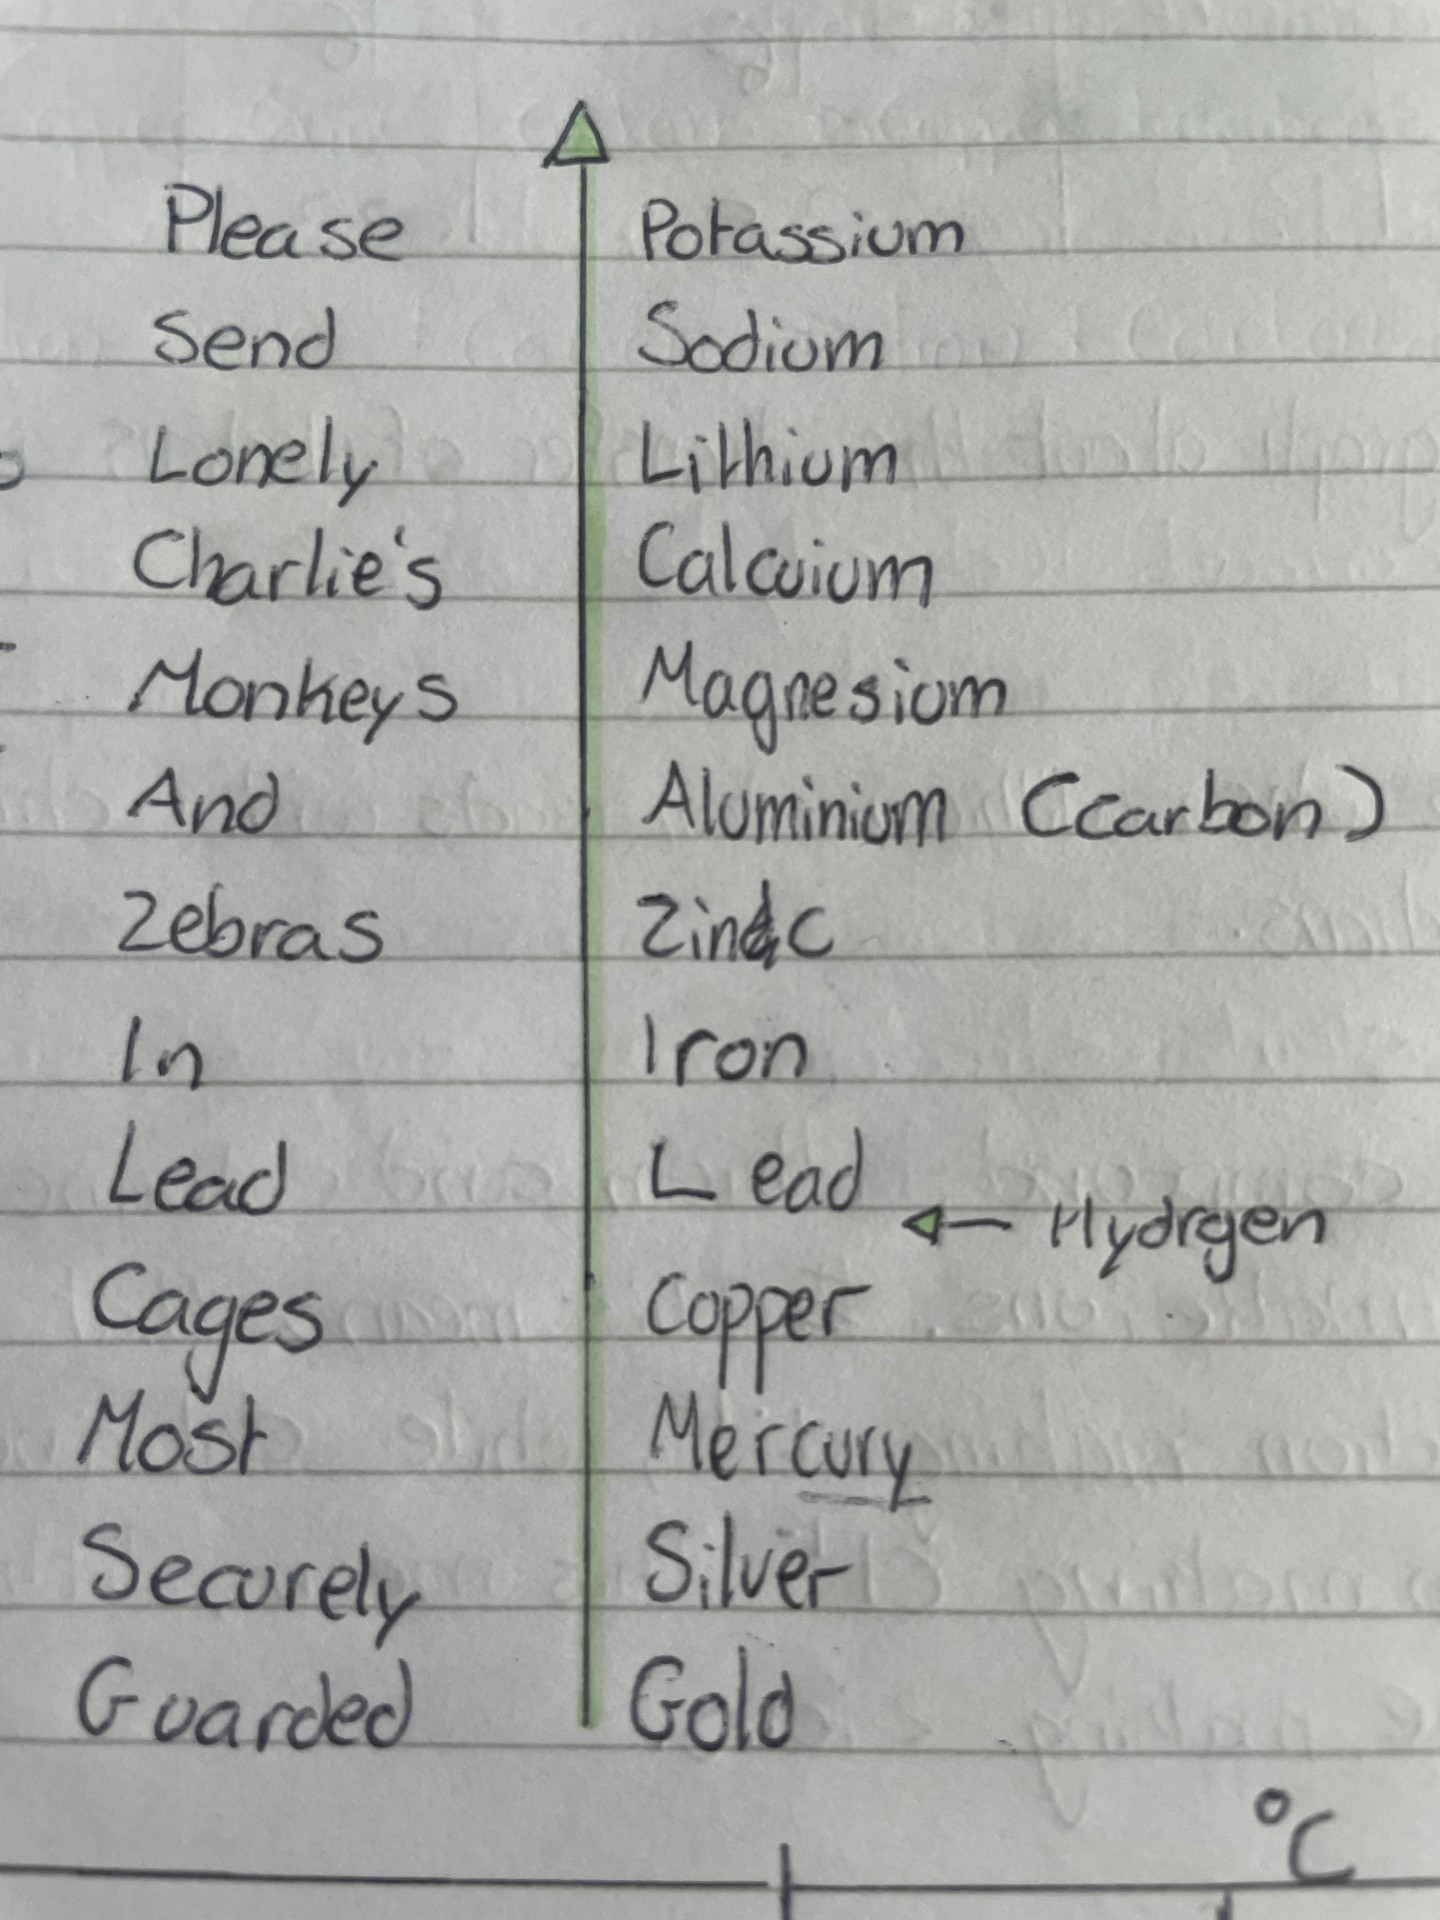 Please Potassium
Send Sodium
Lonely Lithium
Charlie's Calcuium
Monkeys Magnesium
And Aluminium (Carbon)
Zebras Zinc
In Iron
Lead Lead
← Hydrgen
Cages Copper
Most Mercury
Securely Silver
Guarded Gold
°C